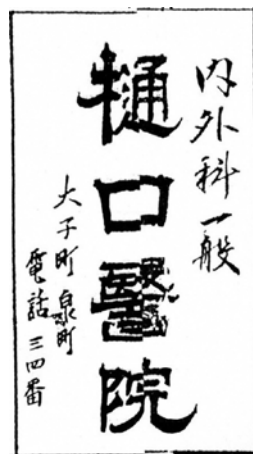 内外科一般
樋口醫院
大子町泉町
電話三四番